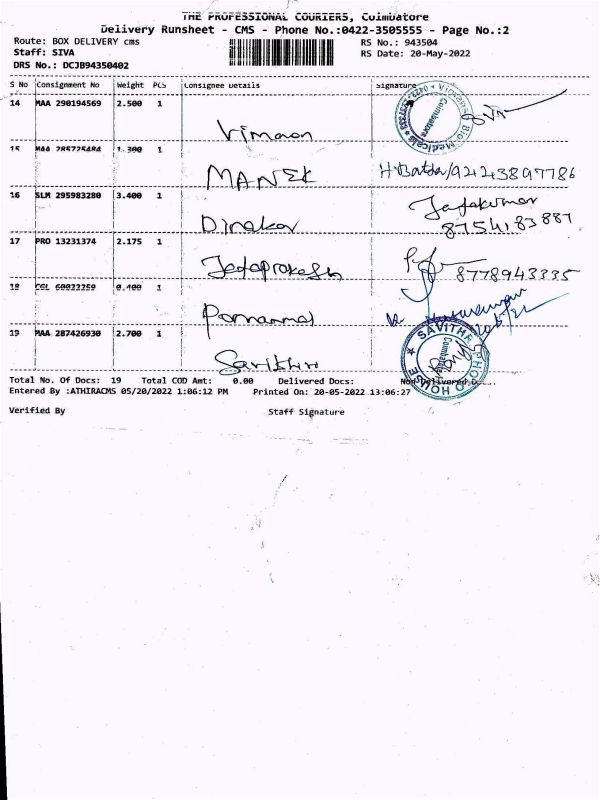 THE PROFESSIONAL COURIERS, Coimbatore
Delivery Runsheet - CMS - Phone No.:0422-3505555 - Page No.:2
Route: BOX DELIVERY cms RS No.: 943504
Staff: SIVA RS Date: 20-May-2022
DRS No.: DCJB94350402
S No Consignment No Weight PCS Consignee Details Signature
14 MAA 290194569 2.500 1
Coimbatore
15 MAA 285725484 1.300 1
MANEK 94243897786
16 SLM 295983280 3.400 1
Dinakar Jayakumar
8754183887
17 PRO 13231374 2.175 1
Jayaprakash 8778943335
18 CGL 60022259 0.400 1
19 MAA 287426930 2.700 1
SAVITHA PHOTO HOUSE
Coimbatore
Total No. Of Docs: 19 Total COD Amt: 0.00 Delivered Docs: Non Delivered
Entered By :ATHIRACMS 05/20/2022 1:06:12 PM Printed On: 20-05-2022 13:06:27
Verified By Staff Signature